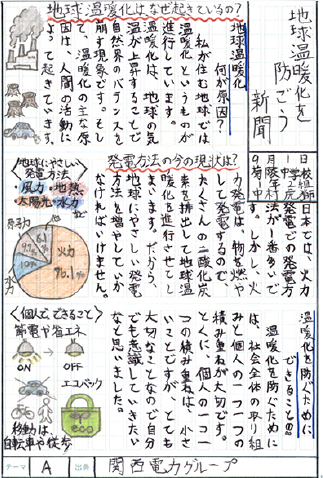 地球温暖化を
防ごう
新聞
地球温暖化はなぜ起きているの?
地球温暖化
何が原因?
私が住む地球では
温暖化というものが
進行しています。
温暖化は、地球の気
温が上昇することで
自然界のバランスを
崩す現象です。そし
て、温暖化の主な原
因は、人間の活動に
よって起きています。
発電方法の今の現状は?
日本では、火力
発電での発電方
法が一番多いで
す。しかし、火
力発電は、物を燃や
して発電するので、
たくさんの二酸化炭
素を排出して地球温
暖化を進行させてし
まいます。だから、
方法を増やしていか
なければいけません。
地球にやさしい
発電方法
風力・地熱
太陽光・水力
原子力
火力
水力
温暖化を防ぐために
できることの。
温暖化を防ぐために
は、社会全体の取り組
みと個人の一つ一つの
積み重ねが大切です。
とくに、個人の一つ一
つの積み重ねは、小さ
いことですが、とても
大切なことなので自分
でも意識していきたい
なと思いました。
〈個人で、できること〉
節電や省エネ
ON
OFF
エコバック
eco
移動は、
自転車や徒歩
テーマ
A
出典
関西電力グループ